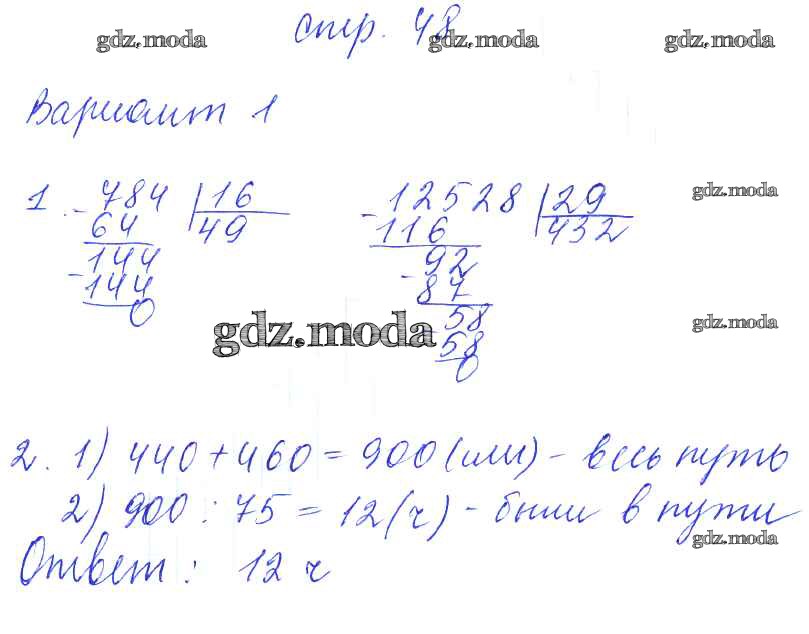 стр. 48
gdz.moda gdz.moda gdz.moda
Вариант 1
gdz.moda
1. - 784 | 16 - 12528 | 29
64 49 116 432
144 92
- 144 - 87
0 58
gdz.moda gdz.moda
58
0
2. 1) 440 + 460 = 900 (км) - весь путь
2) 900 : 75 = 12 (ч) - были в пути
gdz.moda
Ответ: 12 ч